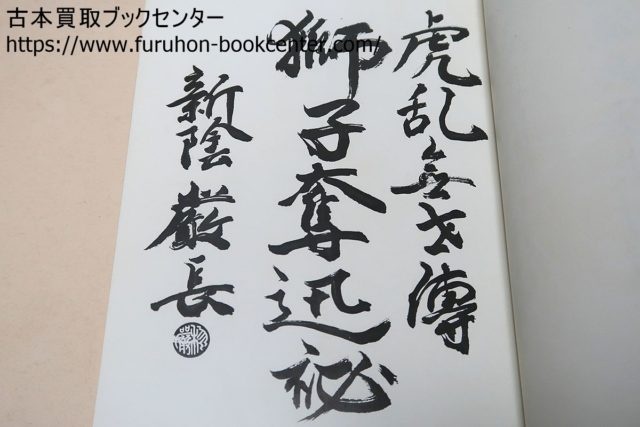 古本買取ブックセンター
https://www.furuhon-bookcenter.com/
虎乱無二傳
獅子奪迅秘
新陰 厳長